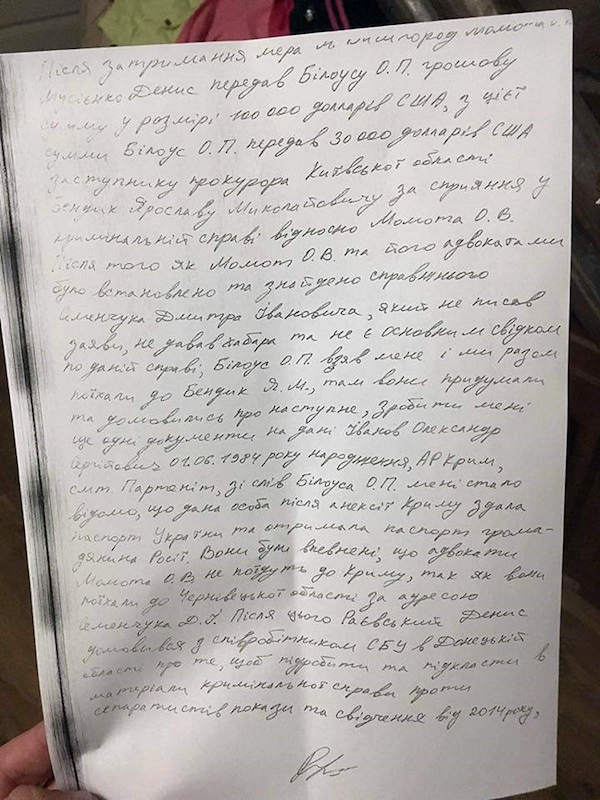 Після затримання мера м. Вишгород Момота О.В.
Мусієнко Денис передав Білоусу О.П. грошову
сумму у розмірі 100 000 долларів США, з цієї
сумми Білоус О.П. передав 30 000 долларів США
заступнику прокурора Київської області
Бендик Ярославу Миколайовичу за сприяння у
кримінальній справі відносно Момота О.В.
Після того як Момот О.В. та його адвокатами
було встановлено та знайдено справжнього
Семенчука Дмитра Івановича, який не писав
заяви, не давав хабара та не є основним свідком
по даній справі, Білоус О.П. взяв мене і ми разом
поїхали до Бендик Я.М., там вони придумали
та домовились про наступне, зробити мені
ще одні документи на дані Іванов Олександр
Сергійович 01.06.1984 року народження, АР Крим,
смт. Партеніт, зі слів Білоуса О.П. мені стало
відомо, що дана особа після анексії Криму здала
паспорт України та отримала паспорт грома-
дянина Росії. Вони були впевнені, що адвокати
Момота О.В. не поїдуть до Криму, так як вони
поїхали до Чернівецької області за адресою
Семенчука Д.І. Після цього Раєвський Денис
домовився з співробітником СБУ в Донецькій
області про те, щоб підробити та підкласти в
матеріали кримінальної справи проти
сепаратистів покази та свідчення від 2014 року,